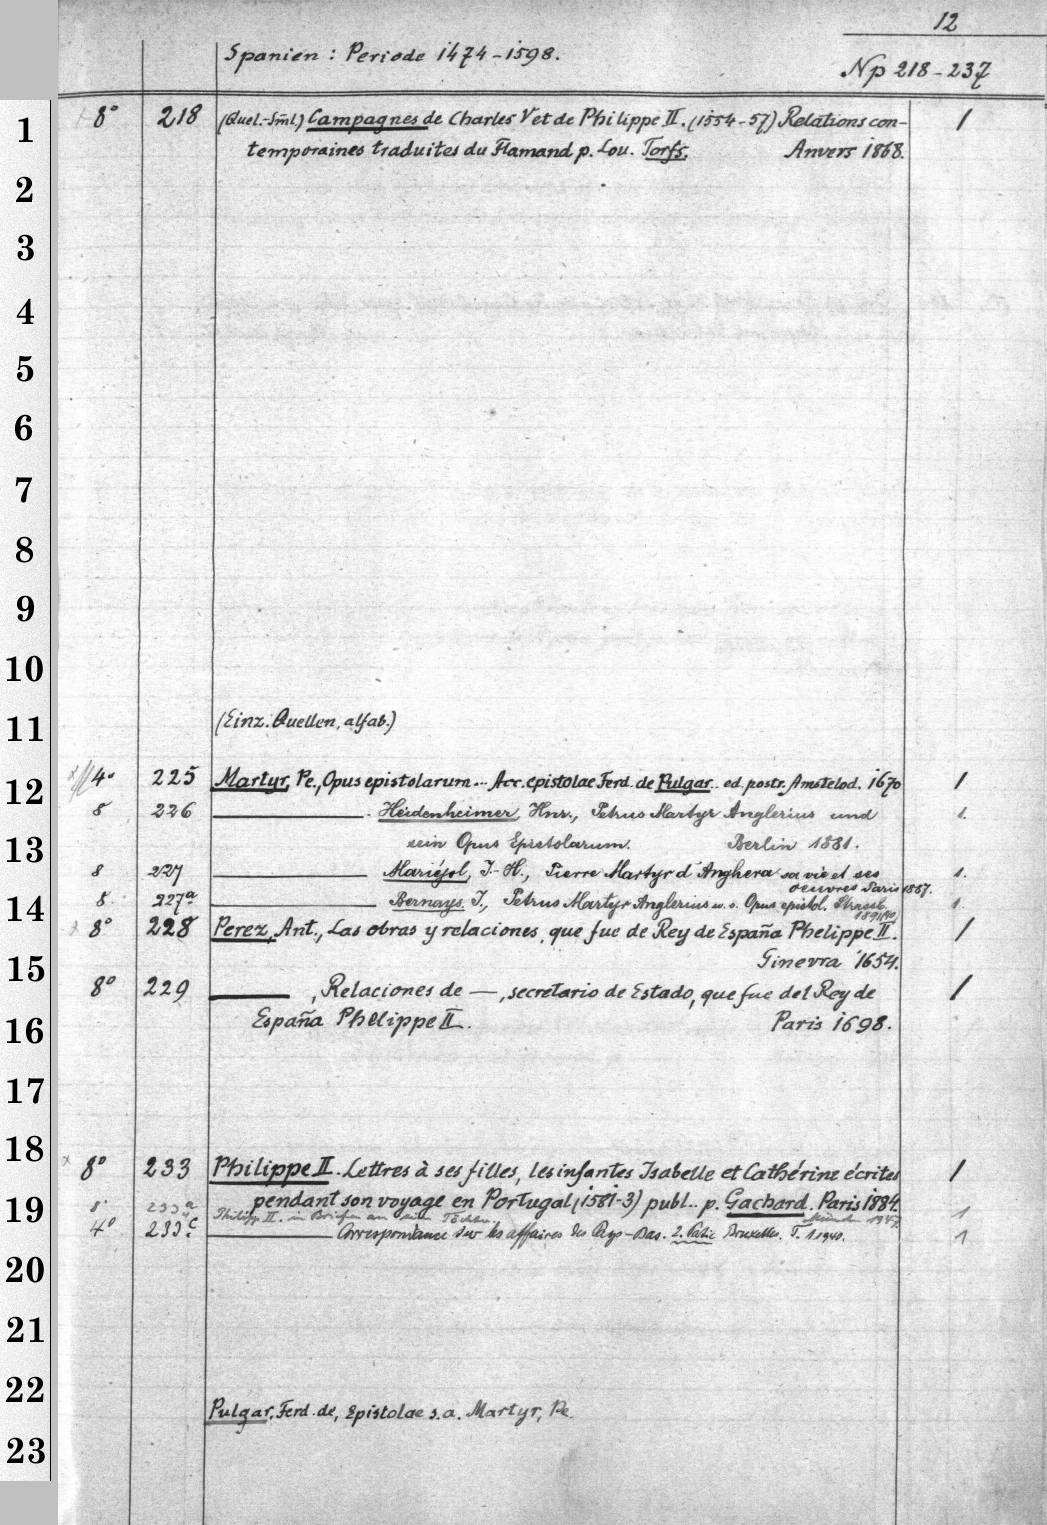 12
Spanien: Periode 1474-1598.
Np 218-237
1 8° 218 (Quel.-Sml.) Campagnes de Charles V et de Philippe II. (1554-57) Relations con- 1
temporaines traduites du Flamand p. Lou. Torfs. Anvers 1868.
2
3
4
5
6
7
8
9
10
11 (Einz. Quellen, alfab.)
12 4° 225 Martyr, Pe., Opus epistolarum... Acc. epistolae Ferd. de Pulgar. ed. postr. Amstelod. 1670 1
8 226 Heidenheimer, Hnr., Petrus Martyr Anglerius und 1.
13 sein Opus Epistolarum. Berlin 1881.
8 227 Mariéjol, J.-H., Pierre Martyr d'Anghera sa vie et ses 1.
oeuvres Paris 1887.
14 8. 227a Bernays, J., Petrus Martyr Anglerius u. s. Opus epistol. Strassb. 1.
1891
8° 228 Perez, Ant., Las obras y relaciones, que fue de Rey de España Phelippe II. 1
15 Ginevra 1654.
8° 229 , Relaciones de —, secretario de Estado, que fue del Rey de 1
16 España Phelippe II. Paris 1698.
17
18 8° 233 Philippe II. Lettres à ses filles, les infantes Isabelle et Cathérine écrites 1
19 pendant son voyage en Portugal (1581-3) publ. p. Gachard. Paris 1884.
8° 233a Philipp II. in Briefen an seine Töchter. 1
4° 233c Correspondance sur les affaires des Pays-Bas. 2. Partie Bruxelles. T. 1 1940. 1
20
21
22 Pulgar, Ferd. de, Epistolae s.a. Martyr, Pe.
23